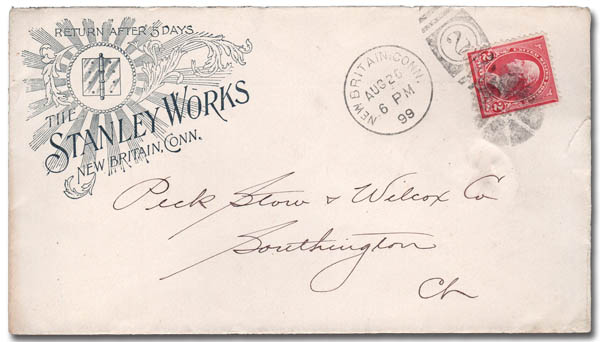 RETURN AFTER 5 DAYS.
THE
STANLEY WORKS
NEW BRITAIN, CONN.
NEW BRITAIN, CONN.
AUG 26
6 PM
99
2
Peck Stow & Wilcox Co
Southington
Ct